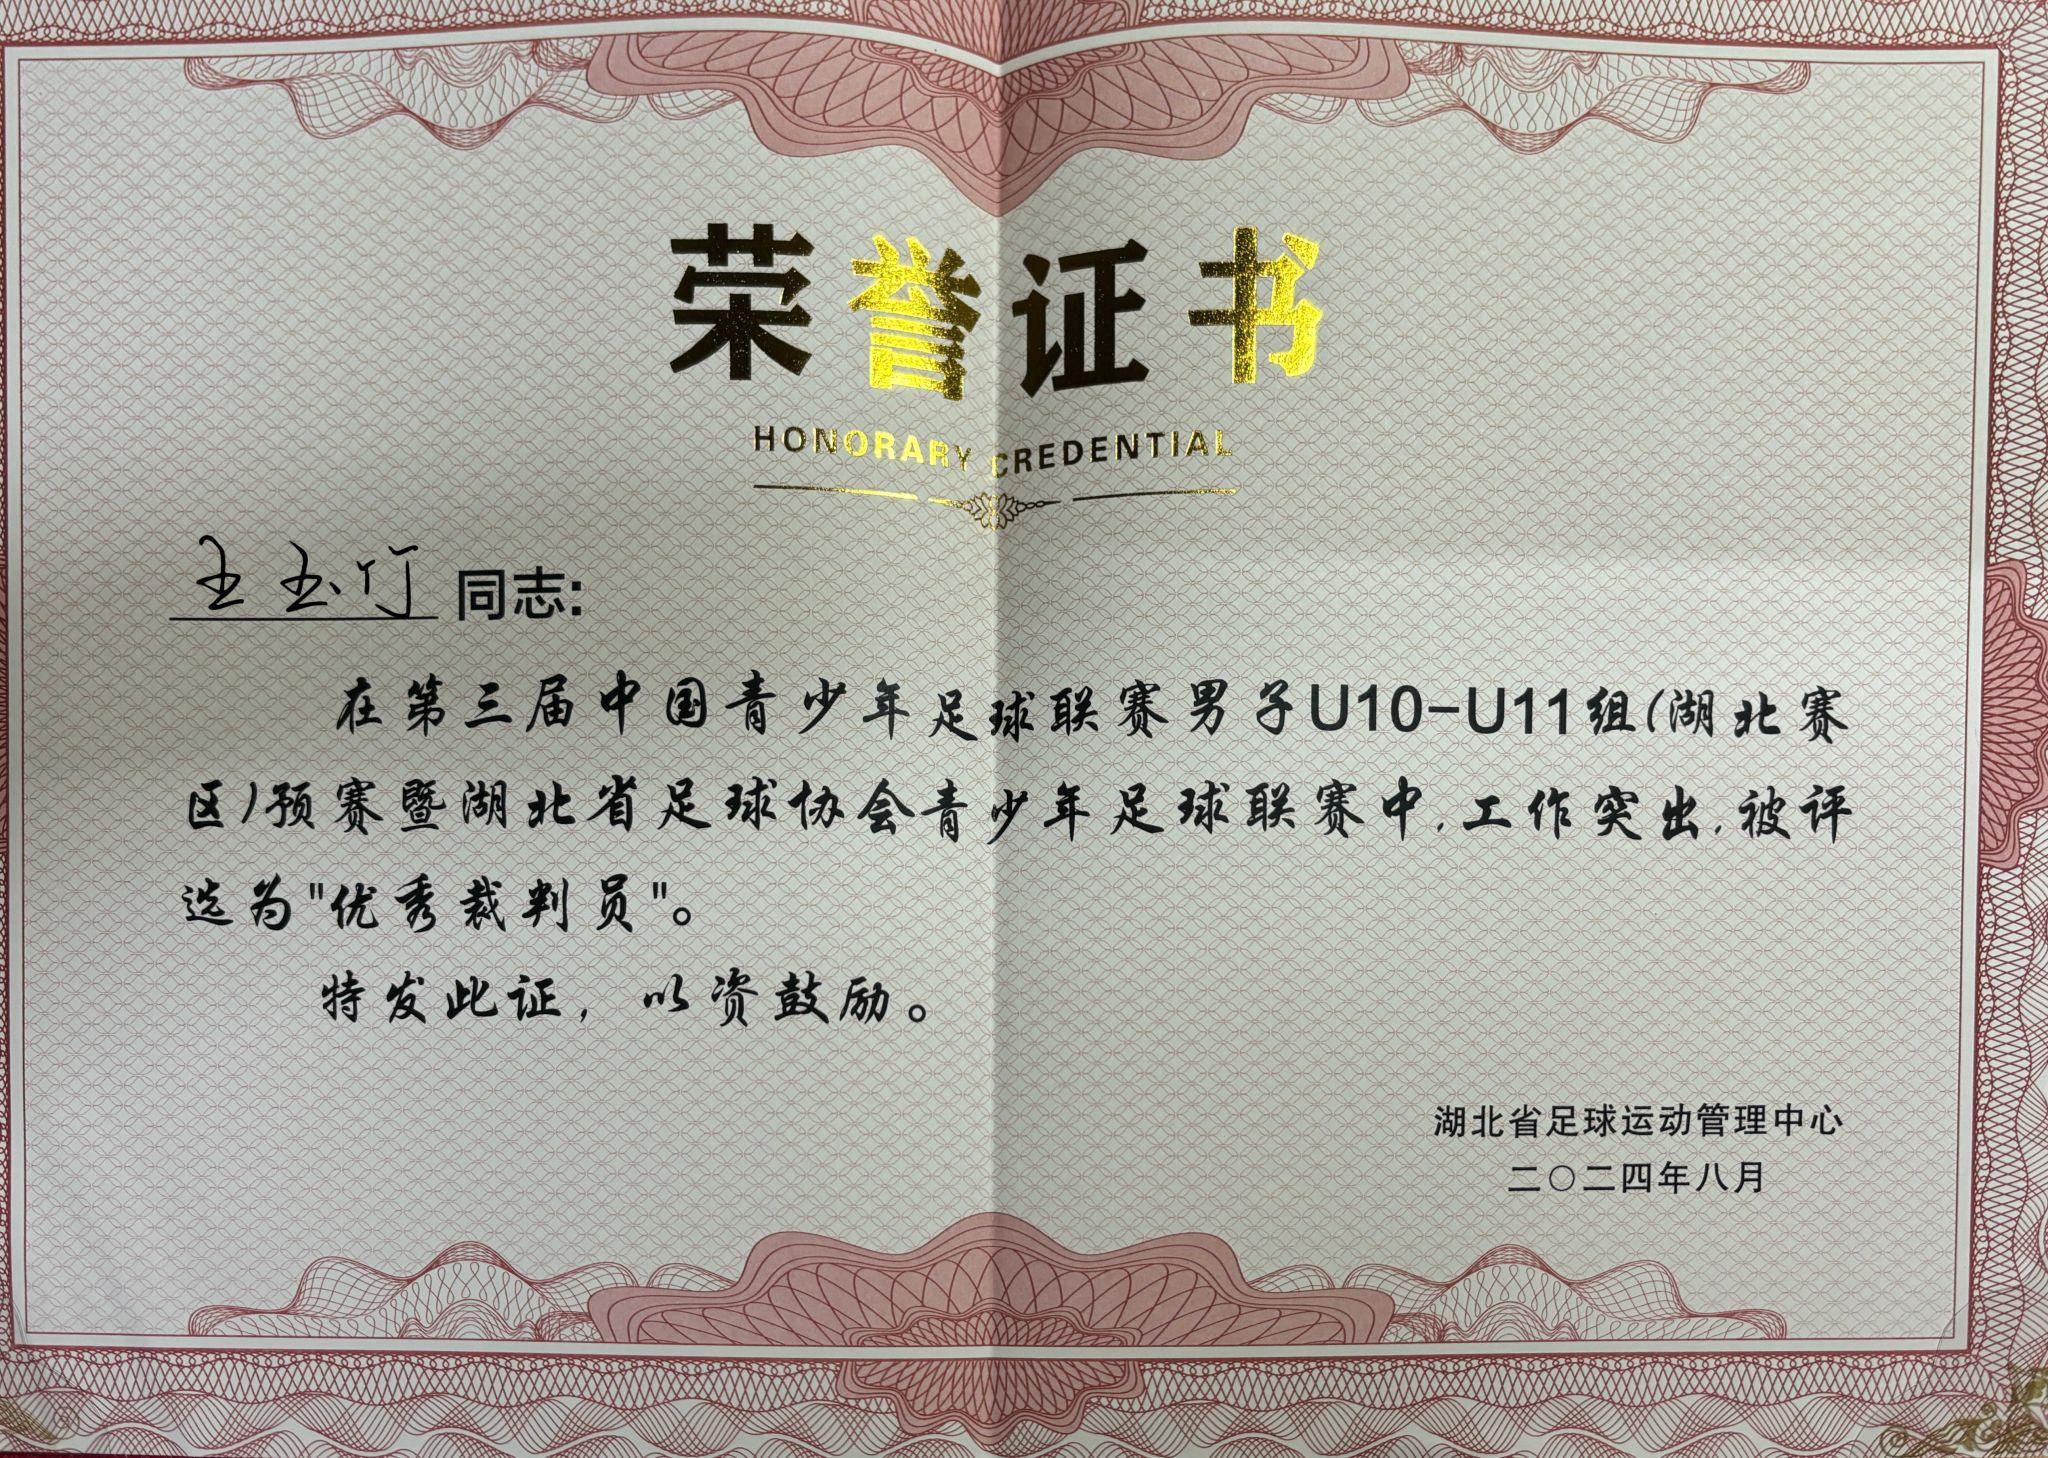 荣誉证书
HONORARY CREDENTIAL
王玉竹 同志:
在第三届中国青少年足球联赛男子U10-U11组(湖北赛
区)预赛暨湖北省足球协会青少年足球联赛中,工作突出,被评
选为"优秀裁判员"。
特发此证，以资鼓励。
湖北省足球运动管理中心
二〇二四年八月